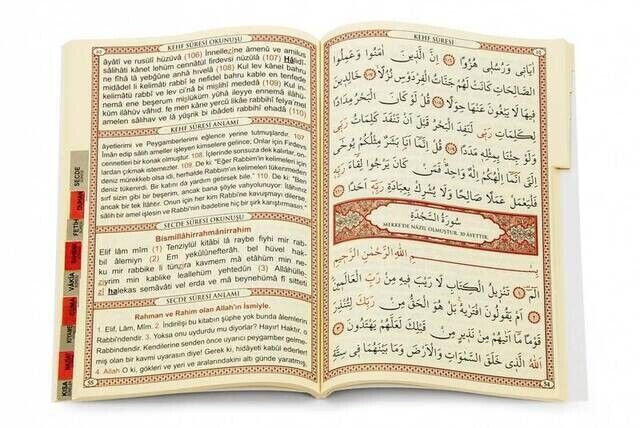 KEHF SÛRESİ OKUNUŞU
âyâtî ve rusulî hüzüvâ (106) İnnellezîne âmenû ve amilus
sâlihâti kânet lehüm cennâtül firdevsi nüzülâ (107) Hâlidî-
(108) Kul lev kânel bahru
midâdel li kelimâti rabbî le nefidel bahru kable en tenfede
kelimâtü rabbî ve lev ci'nâ bi mislihî mededâ (109) Kul in-
nemâ ene beşerum mislüküm yûhâ ileyye ennemâ ilâhü-
küm ilâhüv vâhid, fe men kâne yercû likâe rabbihî felya'mel
amelen sâlihav ve lâ yüşrik bi ibâdeti rabbihî ehadâ (110)
KEHF SÛRESİ ANLAMI
âyetlerimi ve Peygamberlerimi eğlence yerine tutmuşlardır. 107
İman edip sâlih ameller işleyen kimselere gelince; Onlar için Firdevs
cennetleri bir konak olmuştur. 108. İçlerinde sonsuza dek kalırlar, on-
lardan çıkmak istemezler. 109. De ki: "Eğer Rabbin'in kelimeleri için
deniz mürekkeb olsa idi, herhalde Rabbim'in kelimeleri tükenmeden
deniz tükenirdi. Bir katını da yardım getirsek bile." 110. De ki: "Ben
sırf sizin gibi bir beşerim, ancak bana şöyle vahyolunuyor: İlâhınız
ancak bir tek ilâhtır. Onun için her kim Rabbi'ne kavuşmayı dilerse,
sâlih bir amel işlesin ve Rabbi'nin ibadetine hiç bir şirk karıştırmasın."
SECDE SÛRESİ OKUNUŞU
Bismillâhirrahmânirrahim
Elif lâm mîm (1) Tenzîylül kitâbi lâ raybe fîyhi mir rab-
bil âlemiyn (2) Em yekûlûnefterâh, bel hüvel hak-
ku mir rabbike li tünzira kavmem mâ etâhüm min ne-
ziyrim min kablike leallehüm yehtedûn (3) Allâhülle-
zî halekas semâvâti vel erda ve mâ beynehümâ fî sitteti
SECDE SÛRESİ ANLAMI
Rahman ve Rahim olan Allah'ın İsmiyle.
1. Elif, Lâm, Mîm. 2. İndirilişi bu kitabın şüphe yok bunda âlemlerin
Rabbi'ndendir. 3. Yoksa onu uydurdu mu diyorlar? Hayır! Haktır, o
Rabbi'ndendir. Kendilerine senden önce uyarıcı peygamber gelme-
miş olan bir kavmi uyarasın diye! Gerek ki, hidâyeti kabûl ederler!
4. Allah O ki, gökleri ve yeri ve aralarındakini altı günde yaratmış,
55
SECDE
DUHAN
FETİH
VÂKIA
KIYAME
KISA
KEHF SÛRESİ
اٰيَاتٖي وَرُسُلٖي هُزُوًا ﴿١٠٦﴾ اِنَّ الَّذٖينَ اٰمَنُوا وَعَمِلُوا
الصَّالِحَاتِ كَانَتْ لَهُمْ جَنَّاتُ الْفِرْدَوْسِ نُزُلًا ﴿١٠٧﴾ خَالِدٖينَ
فٖيهَا لَا يَبْغُونَ عَنْهَا حِوَلًا ﴿١٠٨﴾ قُلْ لَوْ كَانَ الْبَحْرُ مِدَادًا
لِكَلِمَاتِ رَبّٖي لَنَفِدَ الْبَحْرُ قَبْلَ اَنْ تَنْفَدَ كَلِمَاتُ رَبّٖي
وَلَوْ جِئْنَا بِمِثْلِهٖ مَدَدًا ﴿١٠٩﴾ قُلْ اِنَّمَا اَنَا بَشَرٌ مِثْلُكُمْ يُوحٰى
اِلَيَّ اَنَّمَا اِلٰهُكُمْ اِلٰهٌ وَاحِدٌ فَمَنْ كَانَ يَرْجُوا لِقَاءَ رَبِّهٖ
فَلْيَعْمَلْ عَمَلًا صَالِحًا وَلَا يُشْرِكْ بِعِبَادَةِ رَبِّهٖ اَحَدًا ﴿١١٠﴾
سُورَةُ السَّجْدَةِ
MEKKE'DE NÂZİL OLMUŞTUR. 30 ÂYETTİR.
بِسْمِ اللّٰهِ الرَّحْمٰنِ الرَّحٖيمِ
الٓمٓ ﴿١﴾ تَنْزٖيلُ الْكِتَابِ لَا رَيْبَ فٖيهِ مِنْ رَبِّ الْعَالَمٖينَ
﴿٢﴾ اَمْ يَقُولُونَ افْتَرٰيهُ بَلْ هُوَ الْحَقُّ مِنْ رَبِّكَ لِتُنْذِرَ
قَوْمًا مَا اَتٰيهُمْ مِنْ نَذٖيرٍ مِنْ قَبْلِكَ لَعَلَّهُمْ يَهْتَدُونَ ﴿٣﴾
اَللّٰهُ الَّذٖي خَلَقَ السَّمٰوَاتِ وَالْاَرْضَ وَمَا بَيْنَهُمَا فٖي سِتَّةِ
54